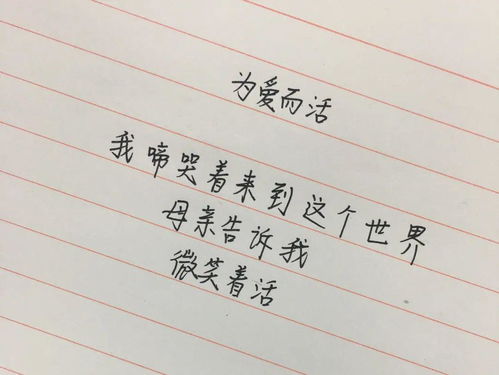 为爱而活
我啼哭着来到这个世界
母亲告诉我
微笑着活